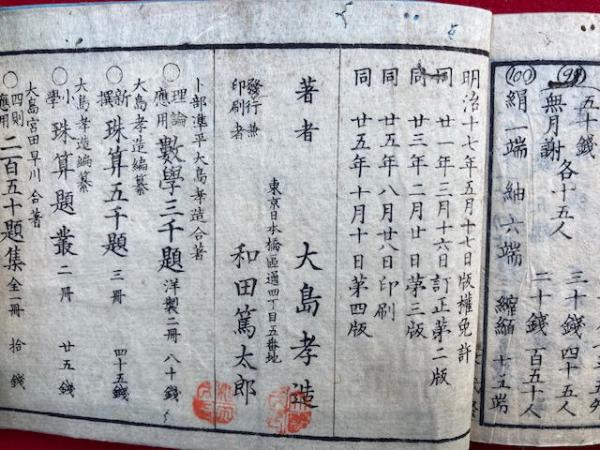 99
五十錢
無月謝 各十五人
三十錢 四十五人
二十錢 百五十人
100
絹一端 紬六端 縮緬十五端
明治十七年五月十七日版權免許
同 廿一年三月十六日訂正第二版
同 廿三年二月廿日第三版
同 廿五年八月廿八日印刷
同 廿五年十月十日第四版
著者 大島孝造
東京日本橋區通四丁目五番地
發行兼印刷者 和田篤太郎
卜部準平大島孝造合著
○理論應用 數學三千題 洋製二冊 八十錢
大島孝造編纂
○新撰 珠算五千題 三冊 四十五錢
大島孝造編纂
○小學 珠算題叢 二冊 廿五錢
大島宮田早川合著
○四則應用 二百五十題集 全一冊 拾錢